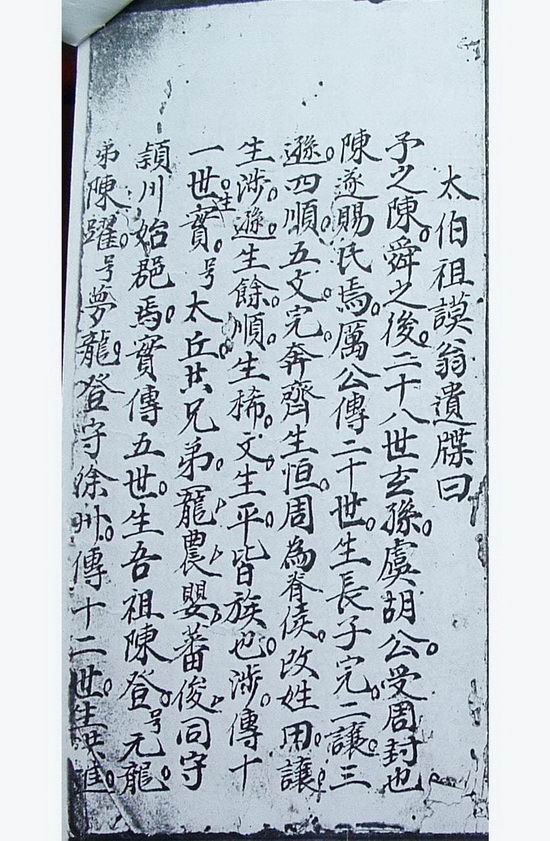 太伯祖謨翁遺牒曰
予之陳。舜之後。二十八世玄孫。虞胡公。受周封也
陳遂賜氏焉。厲公傳二十世。生長子完。二讓。三
遜。四順。五文。完奔齊生恒。周為脊侯。改姓用。讓。
生涉。遜生餘。順生稀。文生平。皆族也。涉傳十
一世。生寔。号太丘。共兄弟。寵農嬰蕃俊同守
頴川始邑焉。寔傳五世。生吾祖陳登。号元龍。
弟陳躍。号夢龍。登守徐州。傳十二世。生洪進。